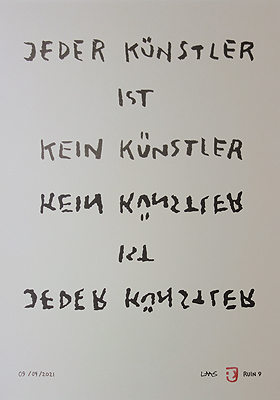 JEDER KÜNSTLER
IST
KEIN KÜNSTLER
KEIN KÜNSTLER
IST
JEDER KÜNSTLER
09/09/2021 LMS RUIN 9